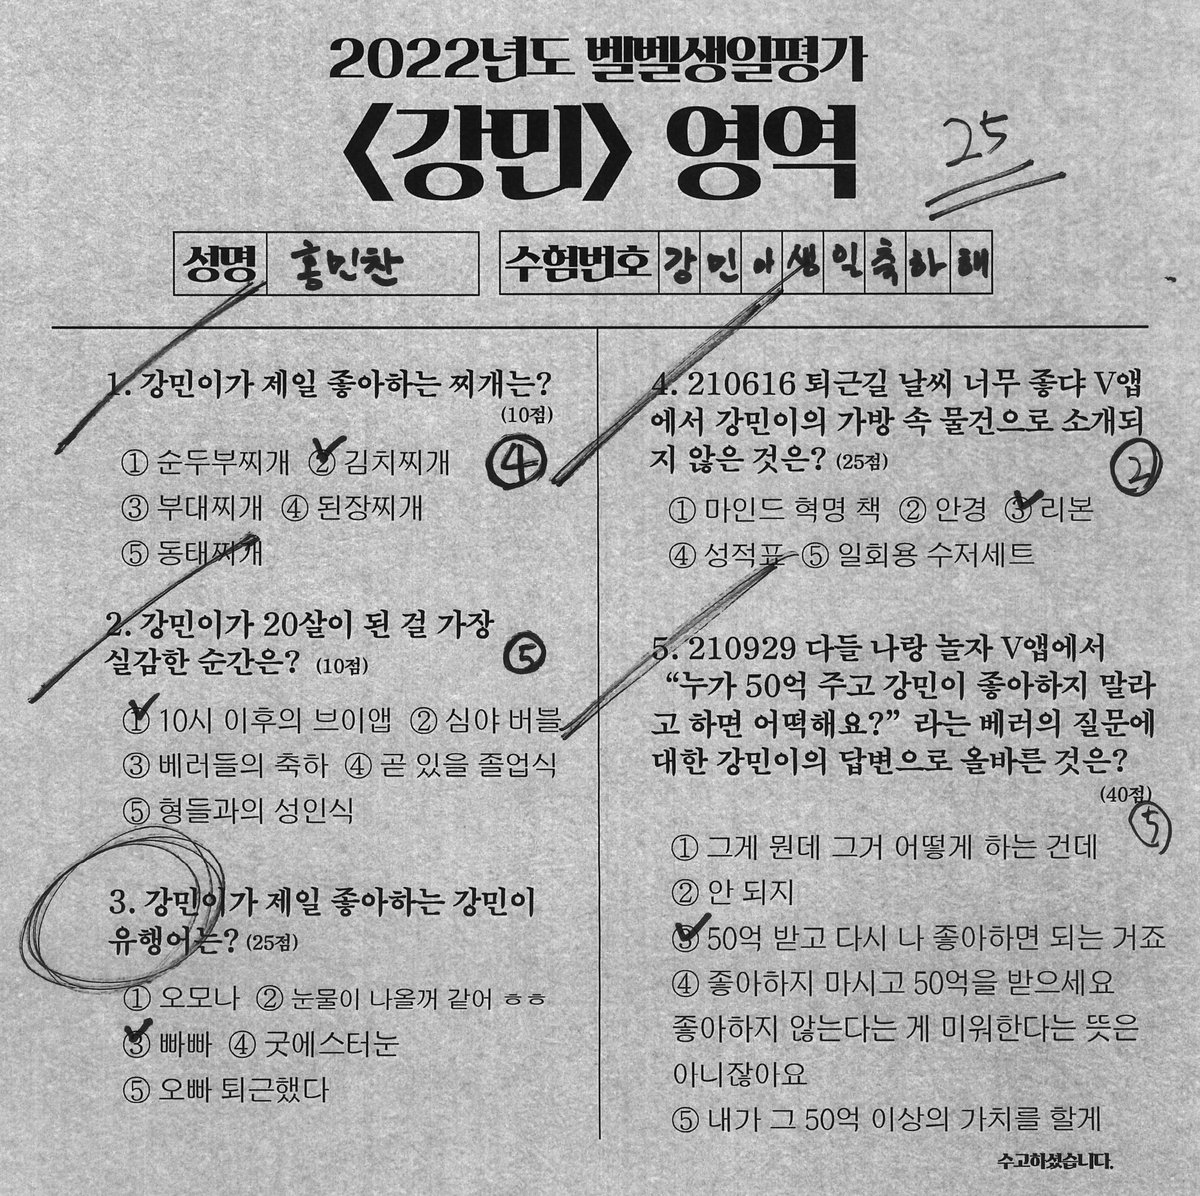 2022년도 벨벨생일평가
<강민> 영역
25
성명 홍민찬 수험번호 강민아생일축하해
1. 강민이가 제일 좋아하는 찌개는?
(10점)
① 순두부찌개 ② 김치찌개
④
③ 부대찌개 ④ 된장찌개
⑤ 동태찌개
2. 강민이가 20살이 된 걸 가장
실감한 순간은? (10점)
⑤
① 10시 이후의 브이앱 ② 심야 버블
③ 베러들의 축하 ④ 곧 있을 졸업식
⑤ 형들과의 성인식
3. 강민이가 제일 좋아하는 강민이
유행어는? (25점)
① 오모나 ② 눈물이 나올꺼 같어 ㅎㅎ
③ 빠빠 ④ 굿에스터눈
⑤ 오빠 퇴근했다
4. 210616 퇴근길 날씨 너무 좋댜 V앱
에서 강민이의 가방 속 물건으로 소개되
지 않은 것은? (25점)
②
① 마인드 혁명 책 ② 안경 ③ 리본
④ 성적표 ⑤ 일회용 수저세트
5. 210929 다들 나랑 놀자 V앱에서
“누가 50억 주고 강민이 좋아하지 말라
고 하면 어떡해요?” 라는 베러의 질문에
대한 강민이의 답변으로 올바른 것은?
(40점)
⑤
① 그게 뭔데 그거 어떻게 하는 건데
② 안 되지
③ 50억 받고 다시 나 좋아하면 되는 거죠
④ 좋아하지 마시고 50억을 받으세요
좋아하지 않는다는 게 미워한다는 뜻은
아니잖아요
⑤ 내가 그 50억 이상의 가치를 할게
수고하셨습니다.